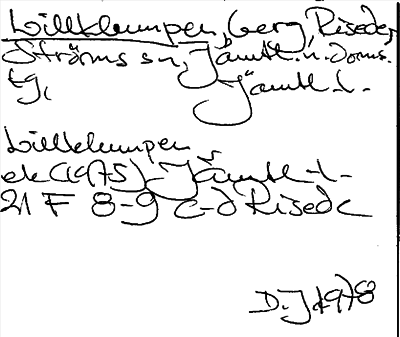 Lillklumpen, berg, Risede,
Ströms sn, Jämtl. n. doms.
tg, Jämtl. l.
Lillklumpen
ek (1975) Jämtl. l.
21 F 8-9 c-d Risede
D.J 1978